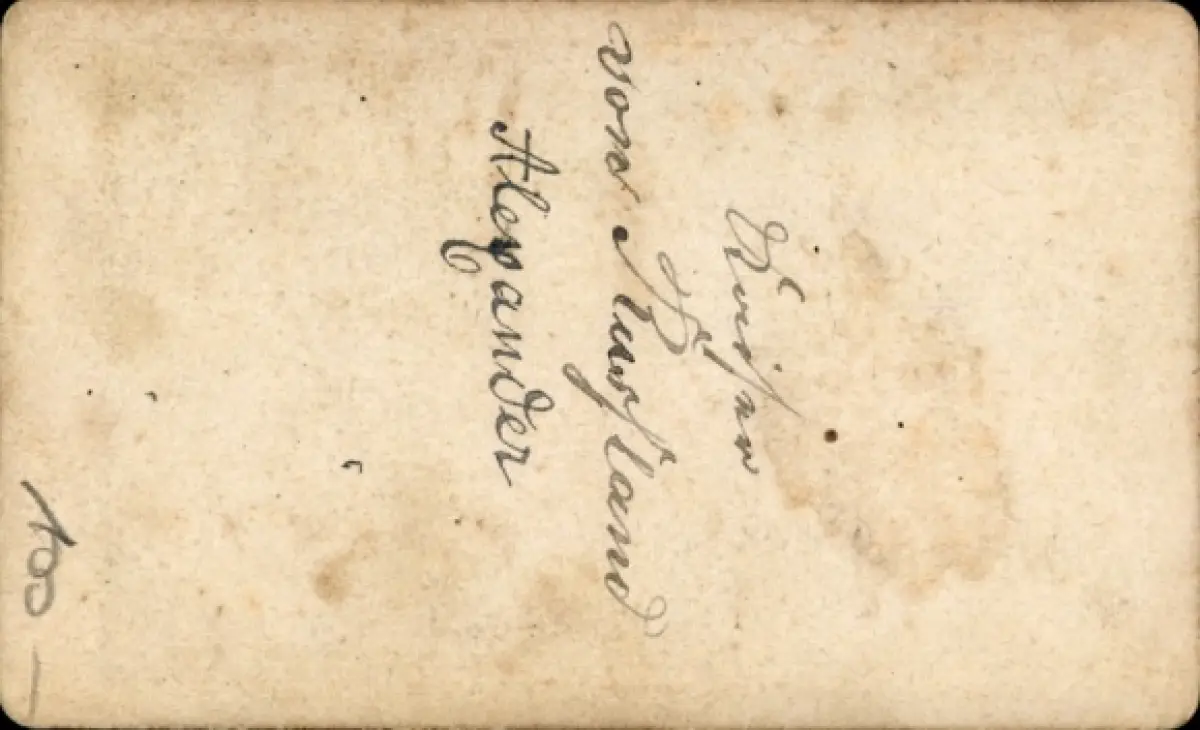 Kaiser
von Russland
Alexander
100 —